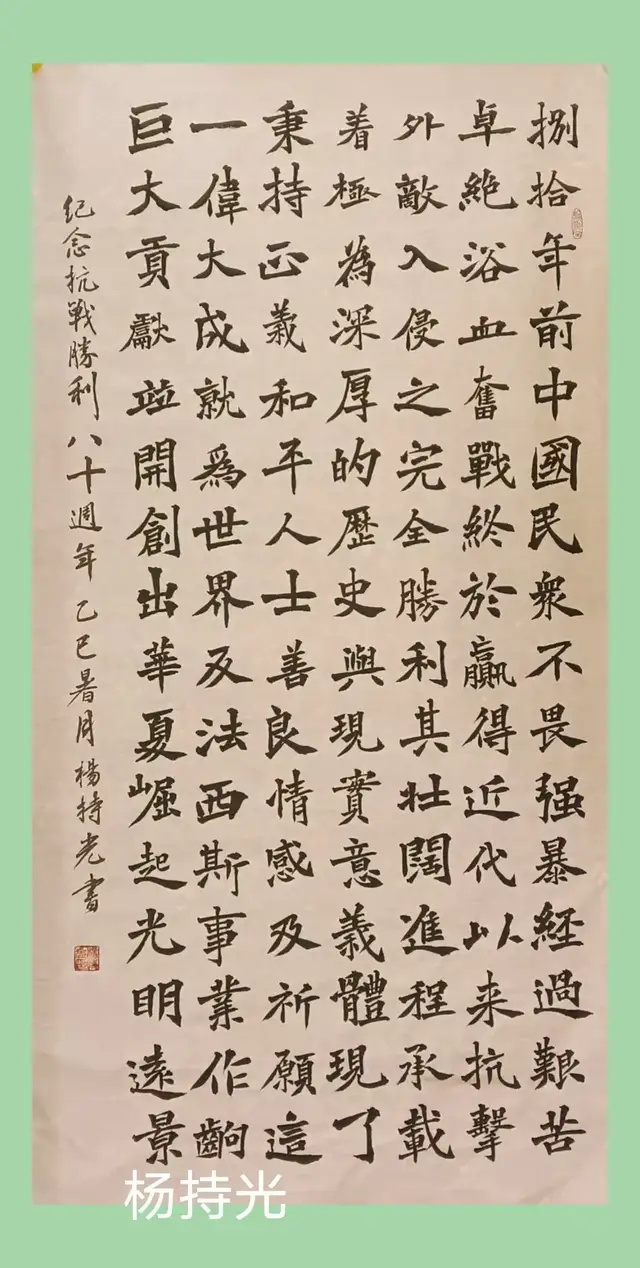 捌拾年前中國民衆不畏强暴経過艱苦
卓絶浴血奮戰終於贏得近代以来抗擊
外敵入侵之完全勝利其壮闊進程承載
着極為深厚的歷史與現實意義體現了
秉持正義和平人士善良情感及祈願這
一偉大成就爲世界反法西斯事業作齣
巨大貢獻竝開創出華夏崛起光明遠景
纪念抗戰勝利八十週年 乙巳暑月 楊持光書
杨持光